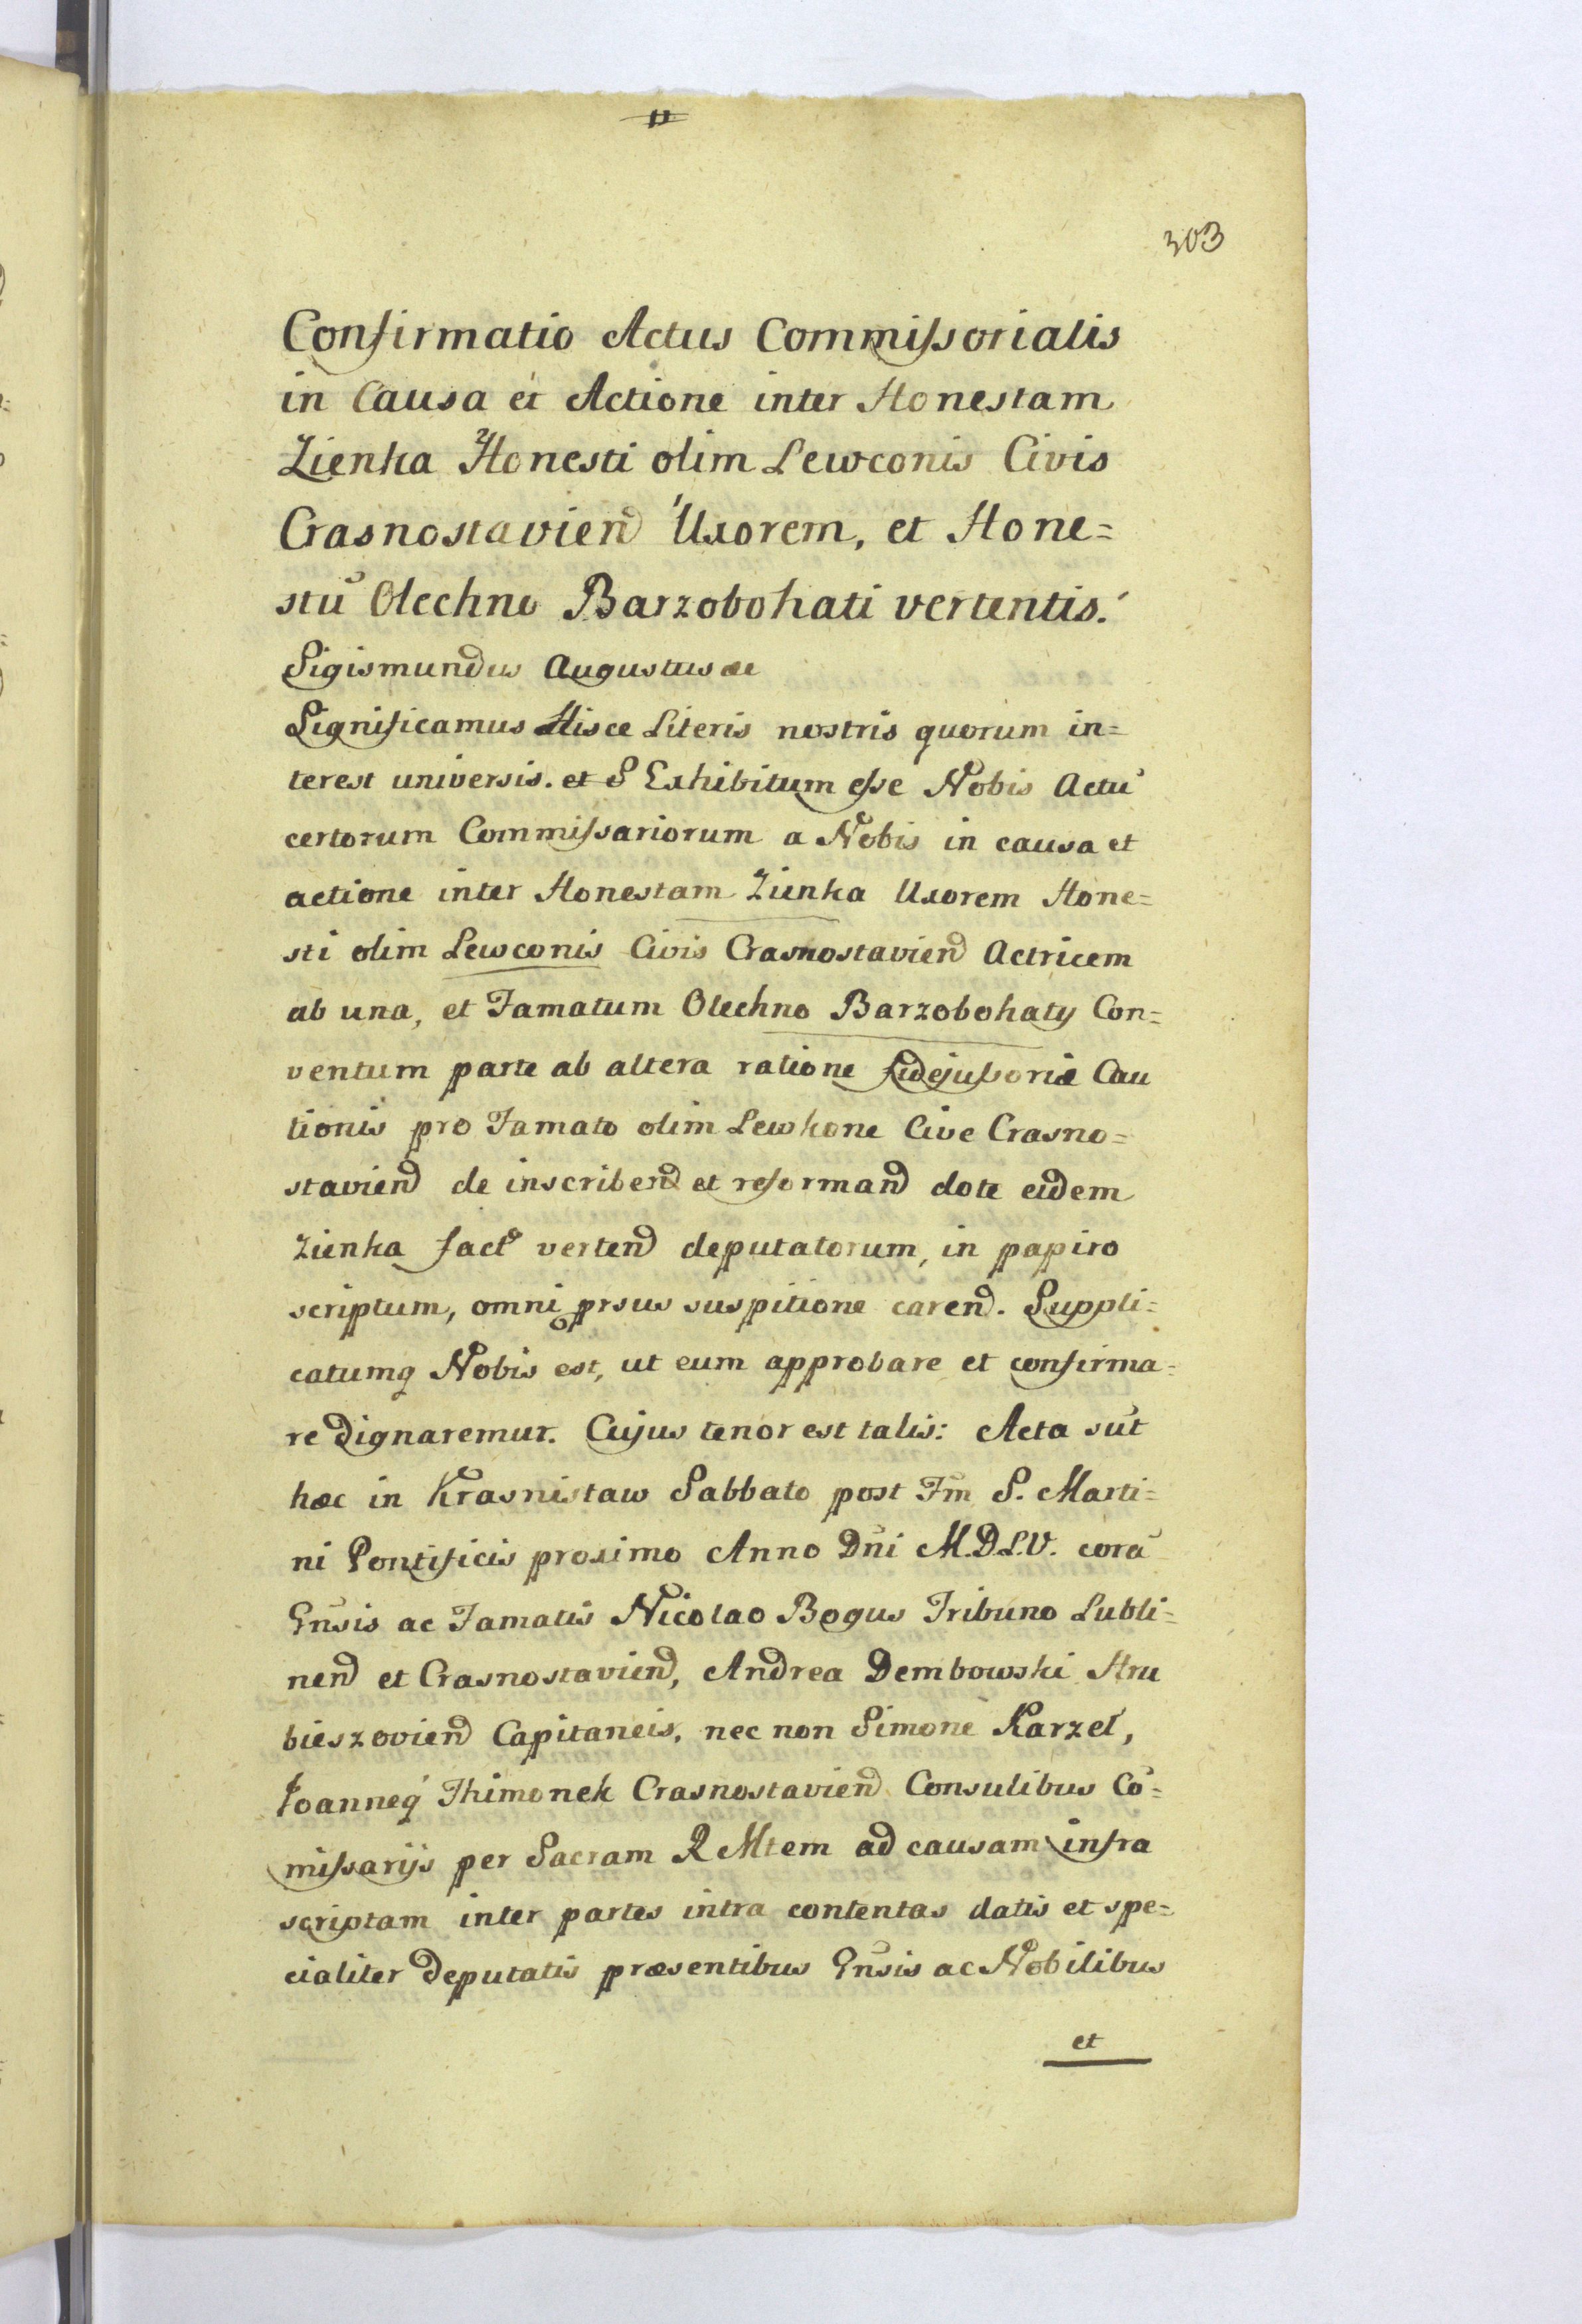 303
Confirmatio Actus Commissorialis
in Causa et Actione inter Honestam
Zienka Honesti olim Lewconis Civis
Crasnostavien Uxorem, et Hone=
stū Olechno Barzobohati vertentis.
Sigismundus Augustus æc
Significamus Hisce Literis nostris quorum in=
terest universis. et S Exhibitum esse Nobis Actū
certorum Commissariorum a Nobis in causa et
actione inter Honestam Zienka Uxorem Hone=
sti olim Lewconis Civis Crasnostavien Actricem
ab una, et Famatum Olechno Barzobohaty Con=
ventum parte ab altera ratione fidejussoriæ Cau
tionis pro Famato olim Lewkone Cive Crasno=
stavien de inscribend et reformand dote eidem
Zienka fact vertend deputatorum, in papiro
scriptum, omni prsus suspitione carend. Suppli=
catumq Nobis est, ut eum approbare et confirma=
re dignaremur. Cujus tenor est talis: Acta sūt
hæc in Krasnistaw Sabbato post Fm S. Marti=
ni Pontificis proximo Anno Dn̄i M.D.L.V. corā
Gn̄sis ac Famatis Nicolao Bogus Tribuno Lubli=
nen et Crasnostavien, Andrea Dembowski Hru
bieszovien Capitaneis, nec non Simone Karzel,
Joanneq Thimonek Crasnostavien Consulibus Cō=
missarijs per Sacram R Mtem ad causam infra
scriptam inter partes intra contentas datis et spe=
cialiter deputatis præsentibus Gn̄sis ac Nobilibus
et